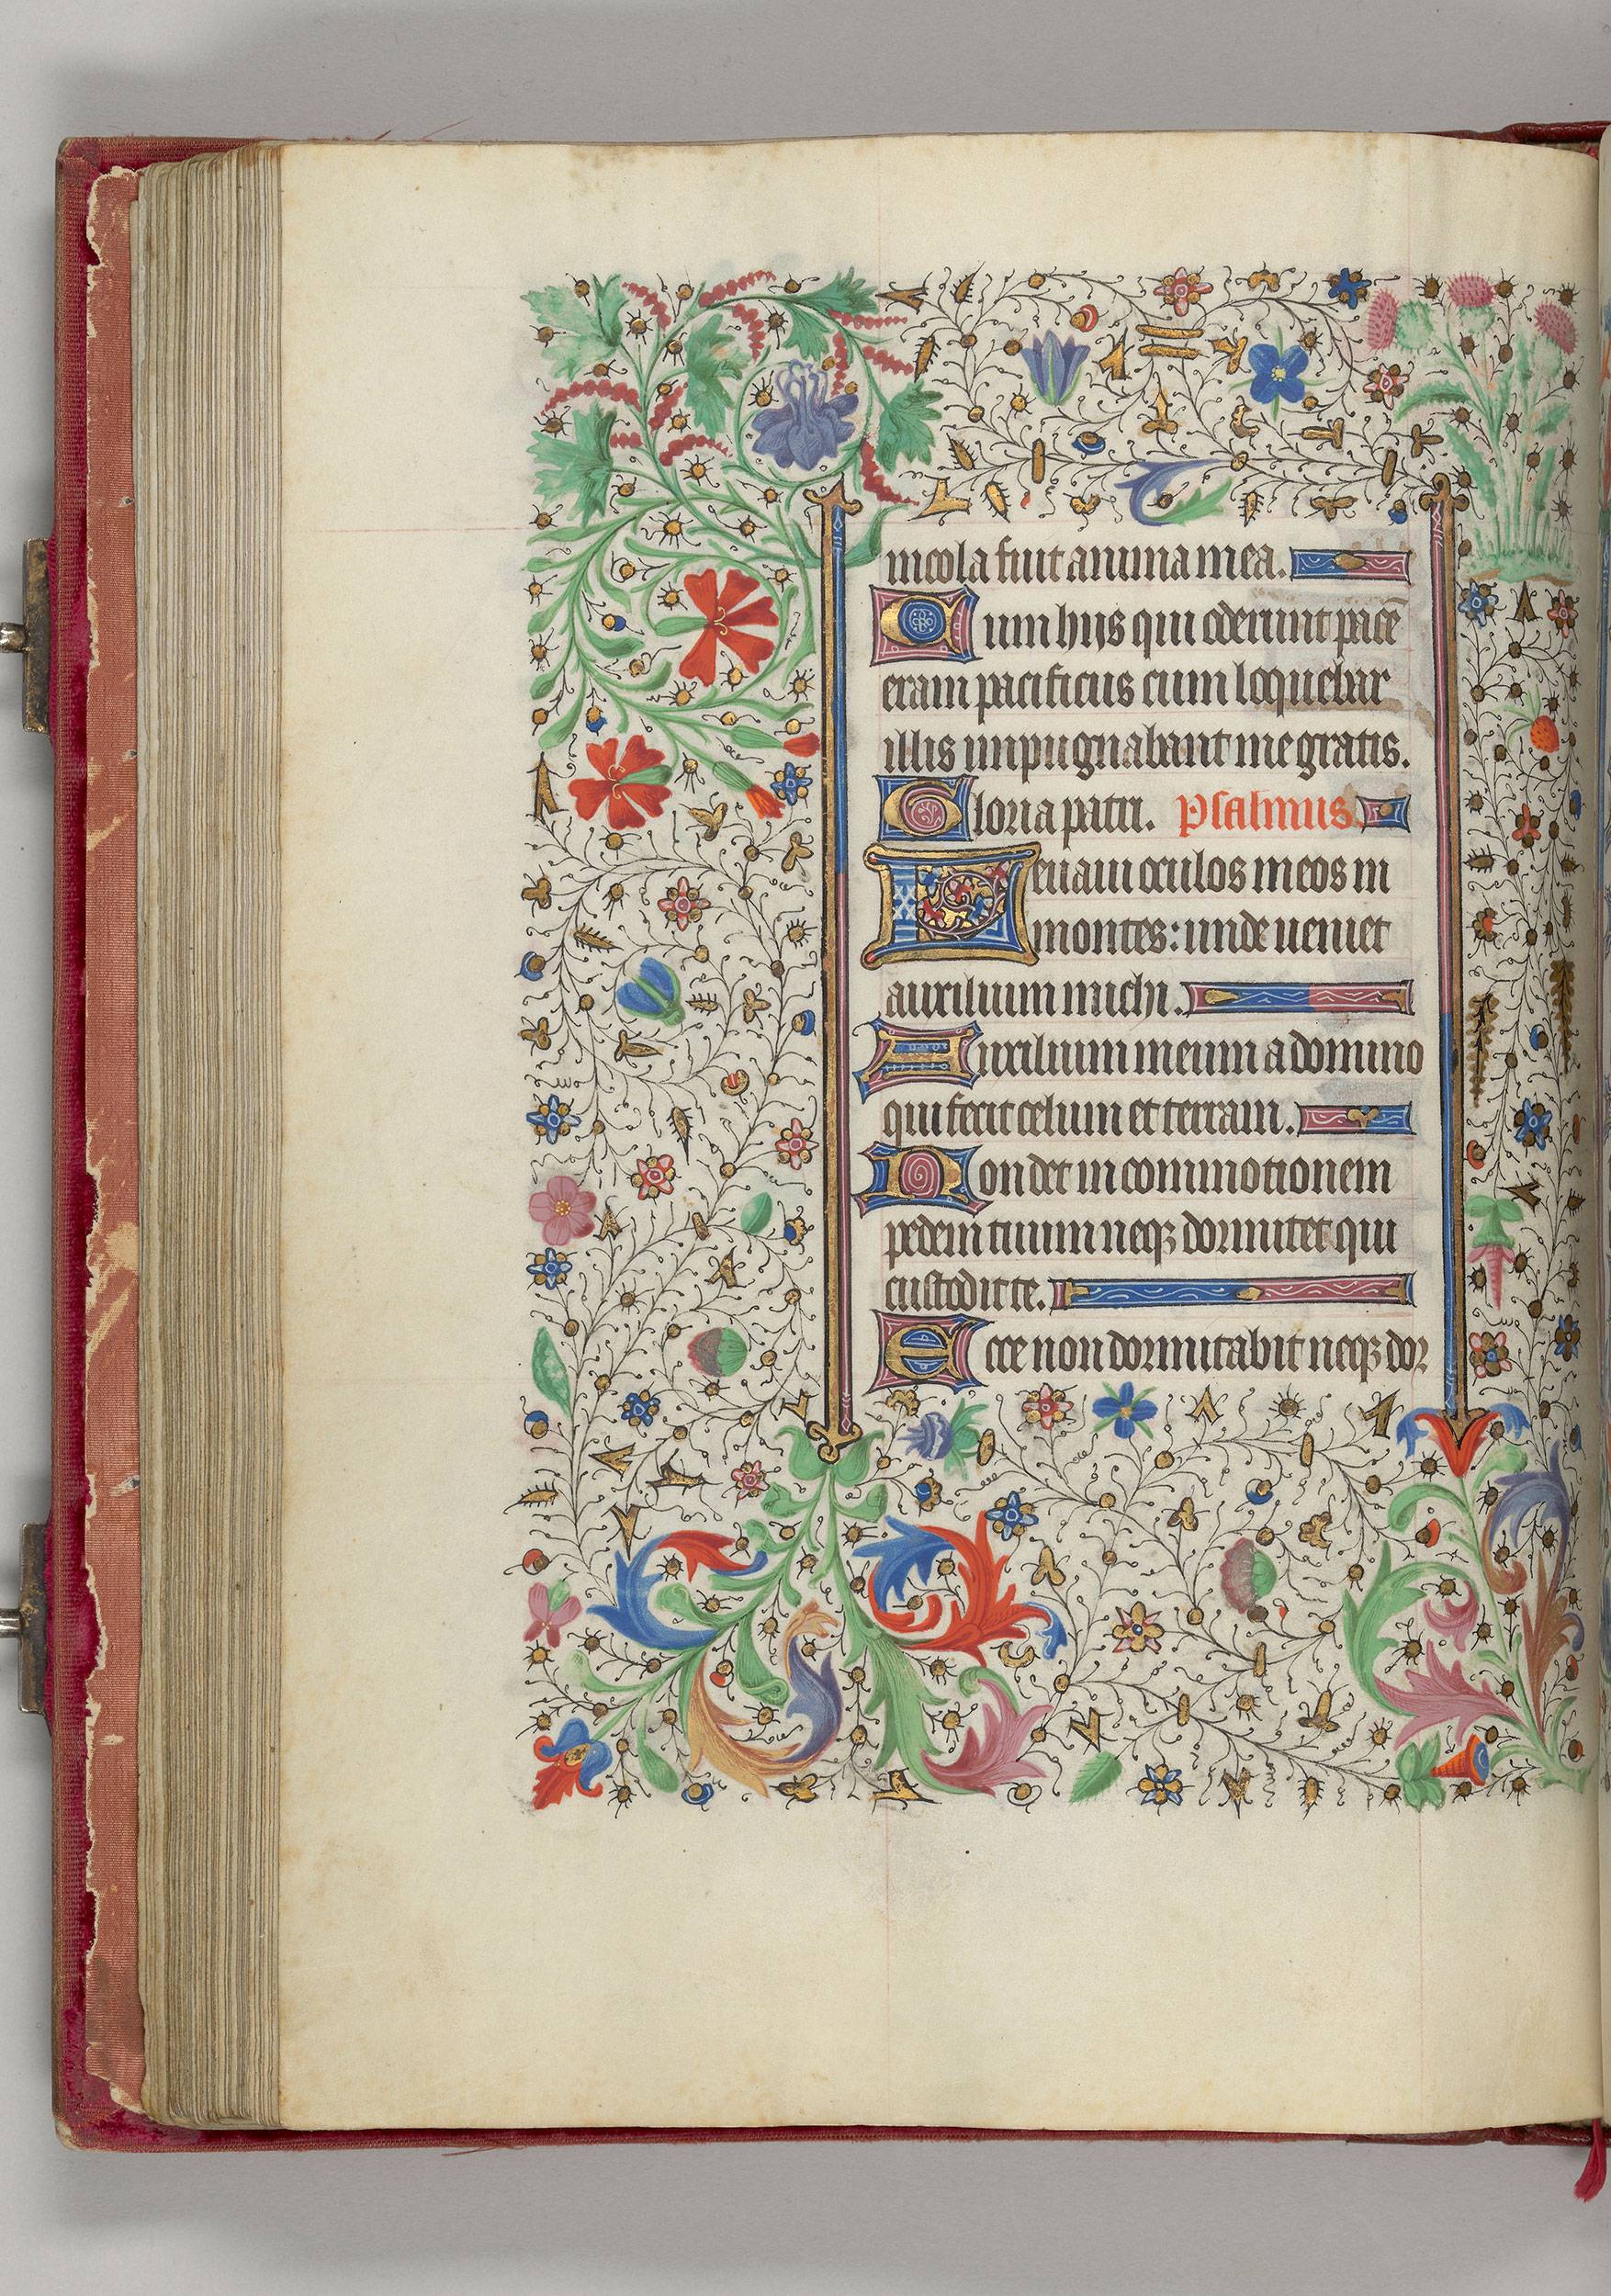 incola fuit anima mea.
Cum hijs qui oderunt pacē
eram pacificus cum loquebar
illis impugnabant me gratis.
Gloria patri. Psalmus
Leuaui oculos meos in
montes: unde ueniet
auxilium michi.
Auxilium meum a domino
qui fecit celum et terram.
Non det in commotionem
pedem tuum neqꝫ dormitet qui
custodit te.
Ecce non dormitabit neqꝫ dor